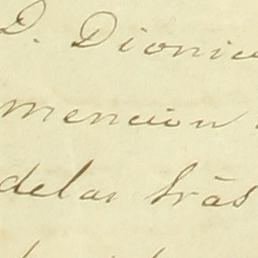 D. Dionic
mencion
delas Srãs